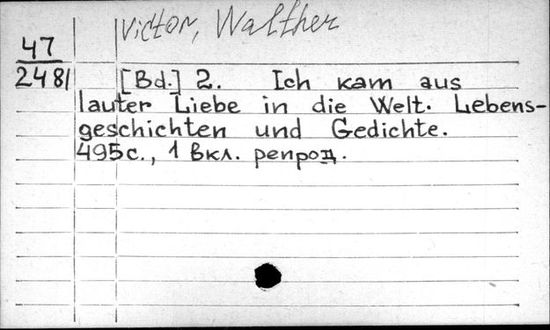 Victor, Walther
47
2481
[Bd.] 2. Ich kam aus
lauter Liebe in die Welt. Lebens-
geschichten und Gedichte.
495с., 1 вкл. репрод.